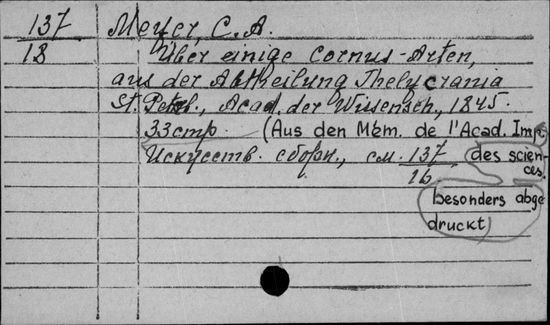 137 Meyer, C. A.
18 Über einige Cornus-Arten,
aus der Abtheilung Thelycrania
St. Petrb., Acad. der Wissensch., 1845.
33 стр. (Aus den Mém. de l'Acad. Imp.
Искусств. сборн., см. 137 des scien-
16 ces.
besonders abge
druckt)